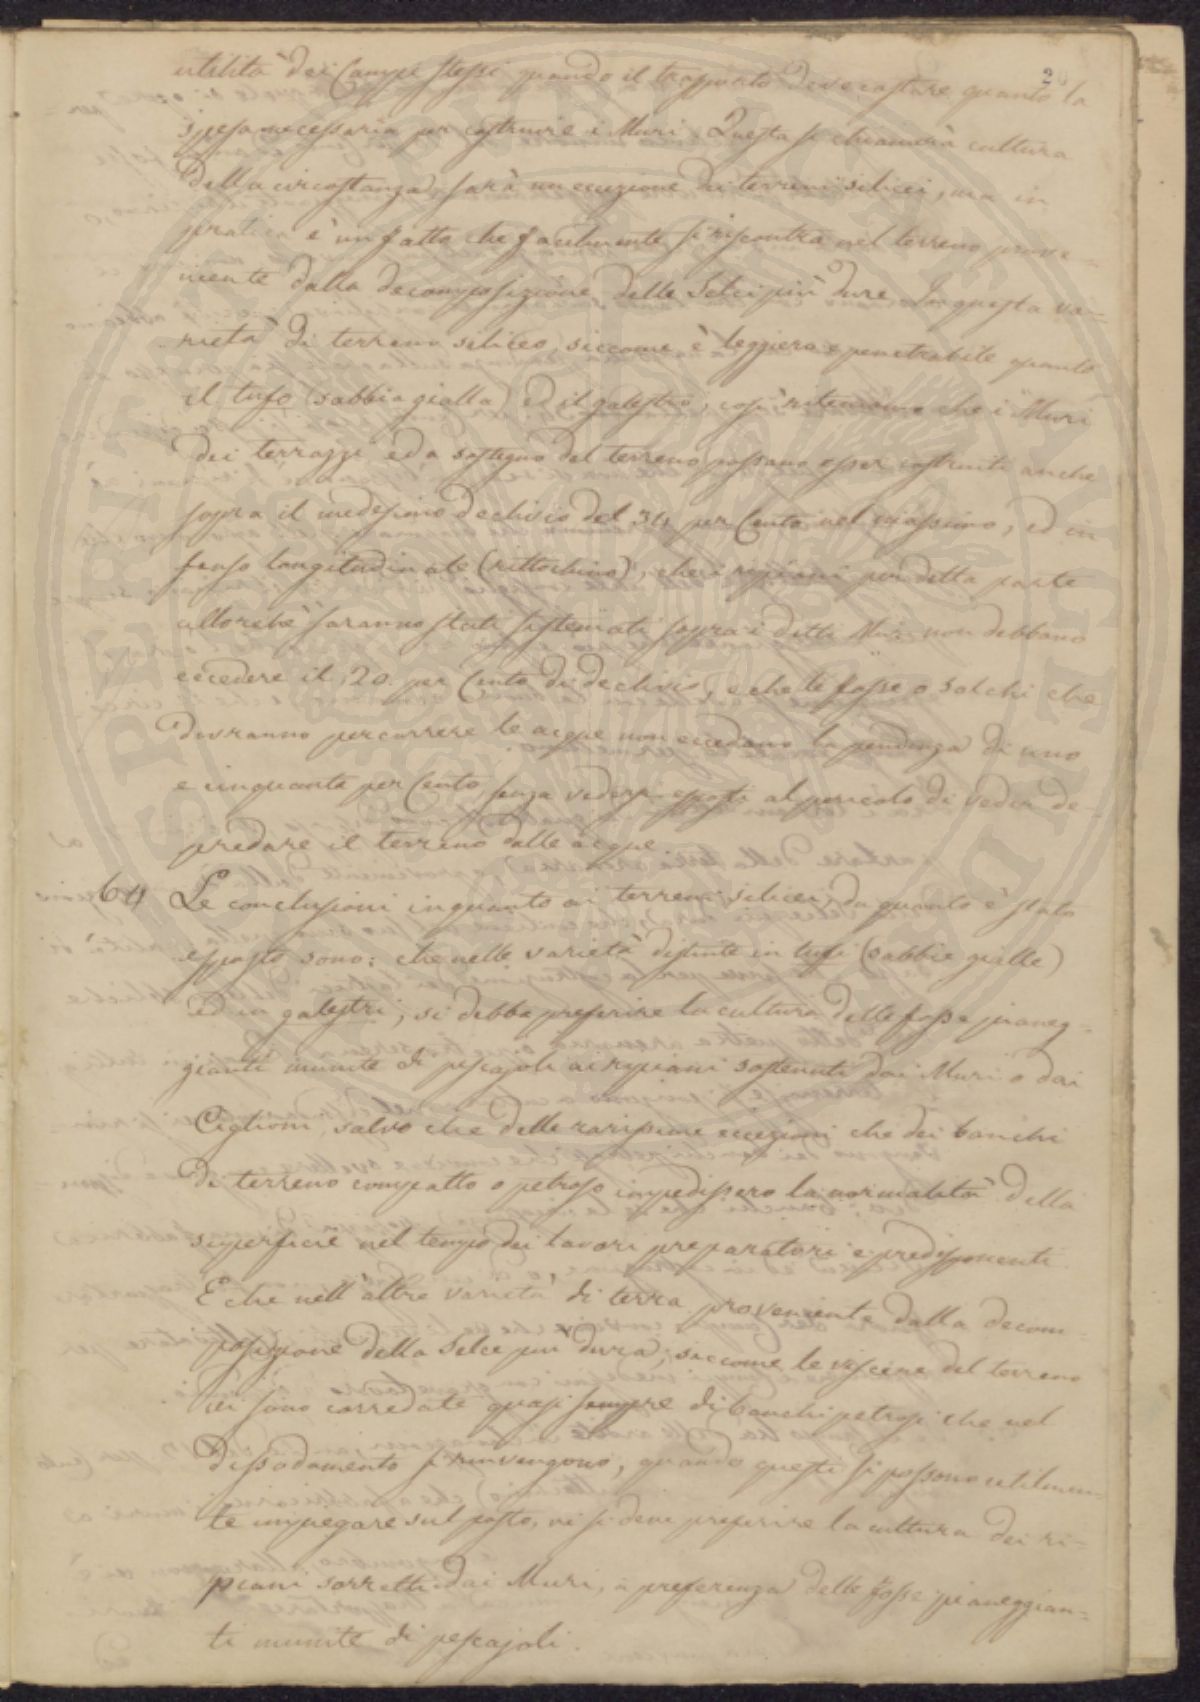 20
utilità dei Campi stessi quando il trasporto deve costare quanto la
spesa necessaria per costruire i Muri. Questa si chiamerà cultura
della circostanza, sarà un eccezione dei terreni silicei, ma in
pratica è un fatto che facilmente si riscontra nel terreno prove-
niente dalla decomposizione delle Selci più dure. In questa va-
rietà di terreno siliceo, siccome è leggiero e penetrabile quanto
il tufo (sabbia gialla) ed il galestro, così riteniamo che i Muri
dei terrazzi ed a sostegno del terreno possano esser costruiti anche
sopra il medesimo declivio del 34 per Cento nel massimo, ed in
senso longitudinale (rittochino), che i ripiani per detta parte
allorchè saranno stati sistemati sopra i detti Muri non debbano
eccedere il 20 per Cento di declivio, e che le fosse o solchi che
dovranno percorrere le acque non eccedano la pendenza di uno
e cinquanta per Cento senza vedersi esposti al pericolo di veder de-
predare il terreno dalle acque.
64 Le conclusioni in quanto ai terreni silicei, da quanto è stato
esposto sono: che nelle varietà distinte in tufi (sabbie gialle)
ed in galestri, si debba preferire la cultura delle fosse pianeg-
gianti munite di pescajoli ai ripiani sostenuti dai Muri o dai
Ciglioni, salvo che delle rarissime eccezioni che dei banchi
di terreno compatto o petroso impedissero la normalità della
superficie nel tempo dei lavori preparatori e predisponenti.
E che nell'altre varietà di terra proveniente dalla decom-
posizione della Selce più dura, siccome le viscere del terreno
ivi sono corredate quasi sempre di banchi petrosi che nel
dissodamento si rinvengono, quando questi si possono utilmen-
te impiegare sul posto, vi si deve preferire la cultura dei ri-
piani sorretti dai Muri, a preferenza delle fosse pianeggian-
ti munite di pescajoli.